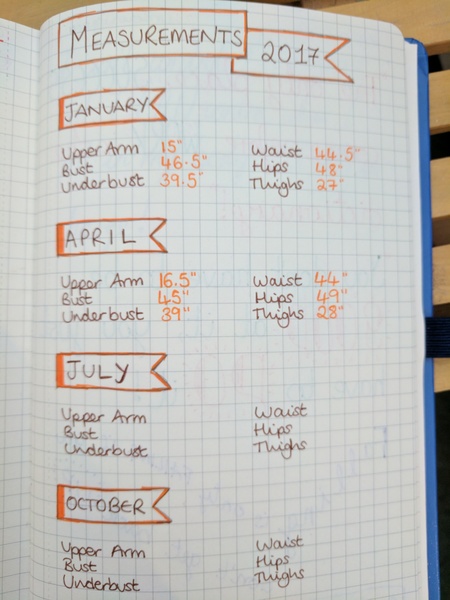 MEASUREMENTS 2017
JANUARY
Upper Arm 15" Waist 44.5"
Bust 46.5" Hips 48"
Underbust 39.5" Thighs 27"
APRIL
Upper Arm 16.5" Waist 44"
Bust 45" Hips 49"
Underbust 39" Thighs 28"
JULY
Upper Arm Waist
Bust Hips
Underbust Thighs
OCTOBER
Upper Arm Waist
Bust Hips
Underbust Thighs